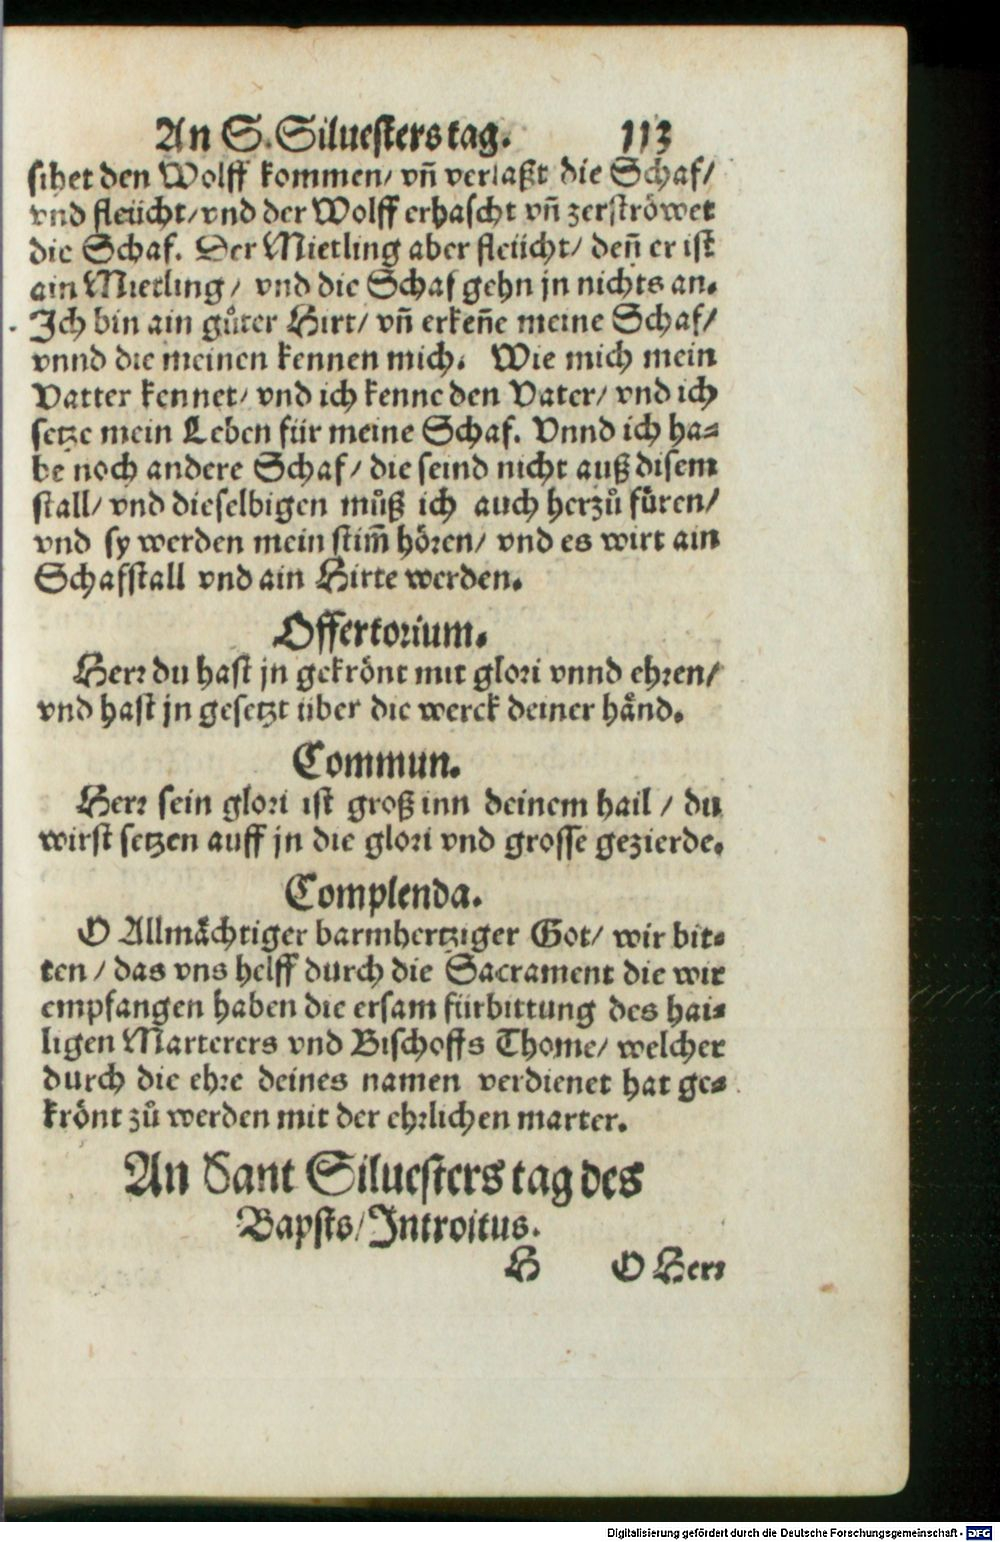 An S. Siluesters tag. 113
sihet den Wolff kommen/ vñ verlaßt die Schaf/
vnd fleücht/ vnd der Wolff erhascht vñ zerströwet
die Schaf. Der Mietling aber fleücht/ deñ er ist
ain Mietling/ vnd die Schaf gehn jn nichts an.
Jch bin ain gůter Hirt/ vñ erkeñe meine Schaf/
vnnd die meinen kennen mich. Wie mich mein
Vatter kennet/ vnd ich kenne den Vater/ vnd ich
setze mein Leben für meine Schaf. Vnnd ich ha⸗
be noch andere Schaf/ die seind nicht auß disem
stall/ vnd dieselbigen můß ich auch herzů füren/
vnd sy werden mein stim̃ hören/ vnd es wirt ain
Schafstall vnd ain Hirte werden.
Offertorium.
Herr du hast jn gekrönt mit glori vnnd ehren/
vnd hast jn gesetzt über die werck deiner händ.
Commun.
Herr sein glori ist groß inn deinem hail / du
wirst setzen auff jn die glori vnd grosse gezierde.
Complenda.
O Allmächtiger barmhertziger Got/ wir bit⸗
ten / das vns helff durch die Sacrament die wir
empfangen haben die ersam fürbittung des hai⸗
ligen Marterers vnd Bischoffs Thome/ welcher
durch die ehre deines namen verdienet hat ge⸗
krönt zů werden mit der ehrlichen marter.
An Sant Siluesters tag des
Bapsts/ Jntroitus.
H O Herr
Digitalisierung gefördert durch die Deutsche Forschungsgemeinschaft - DFG